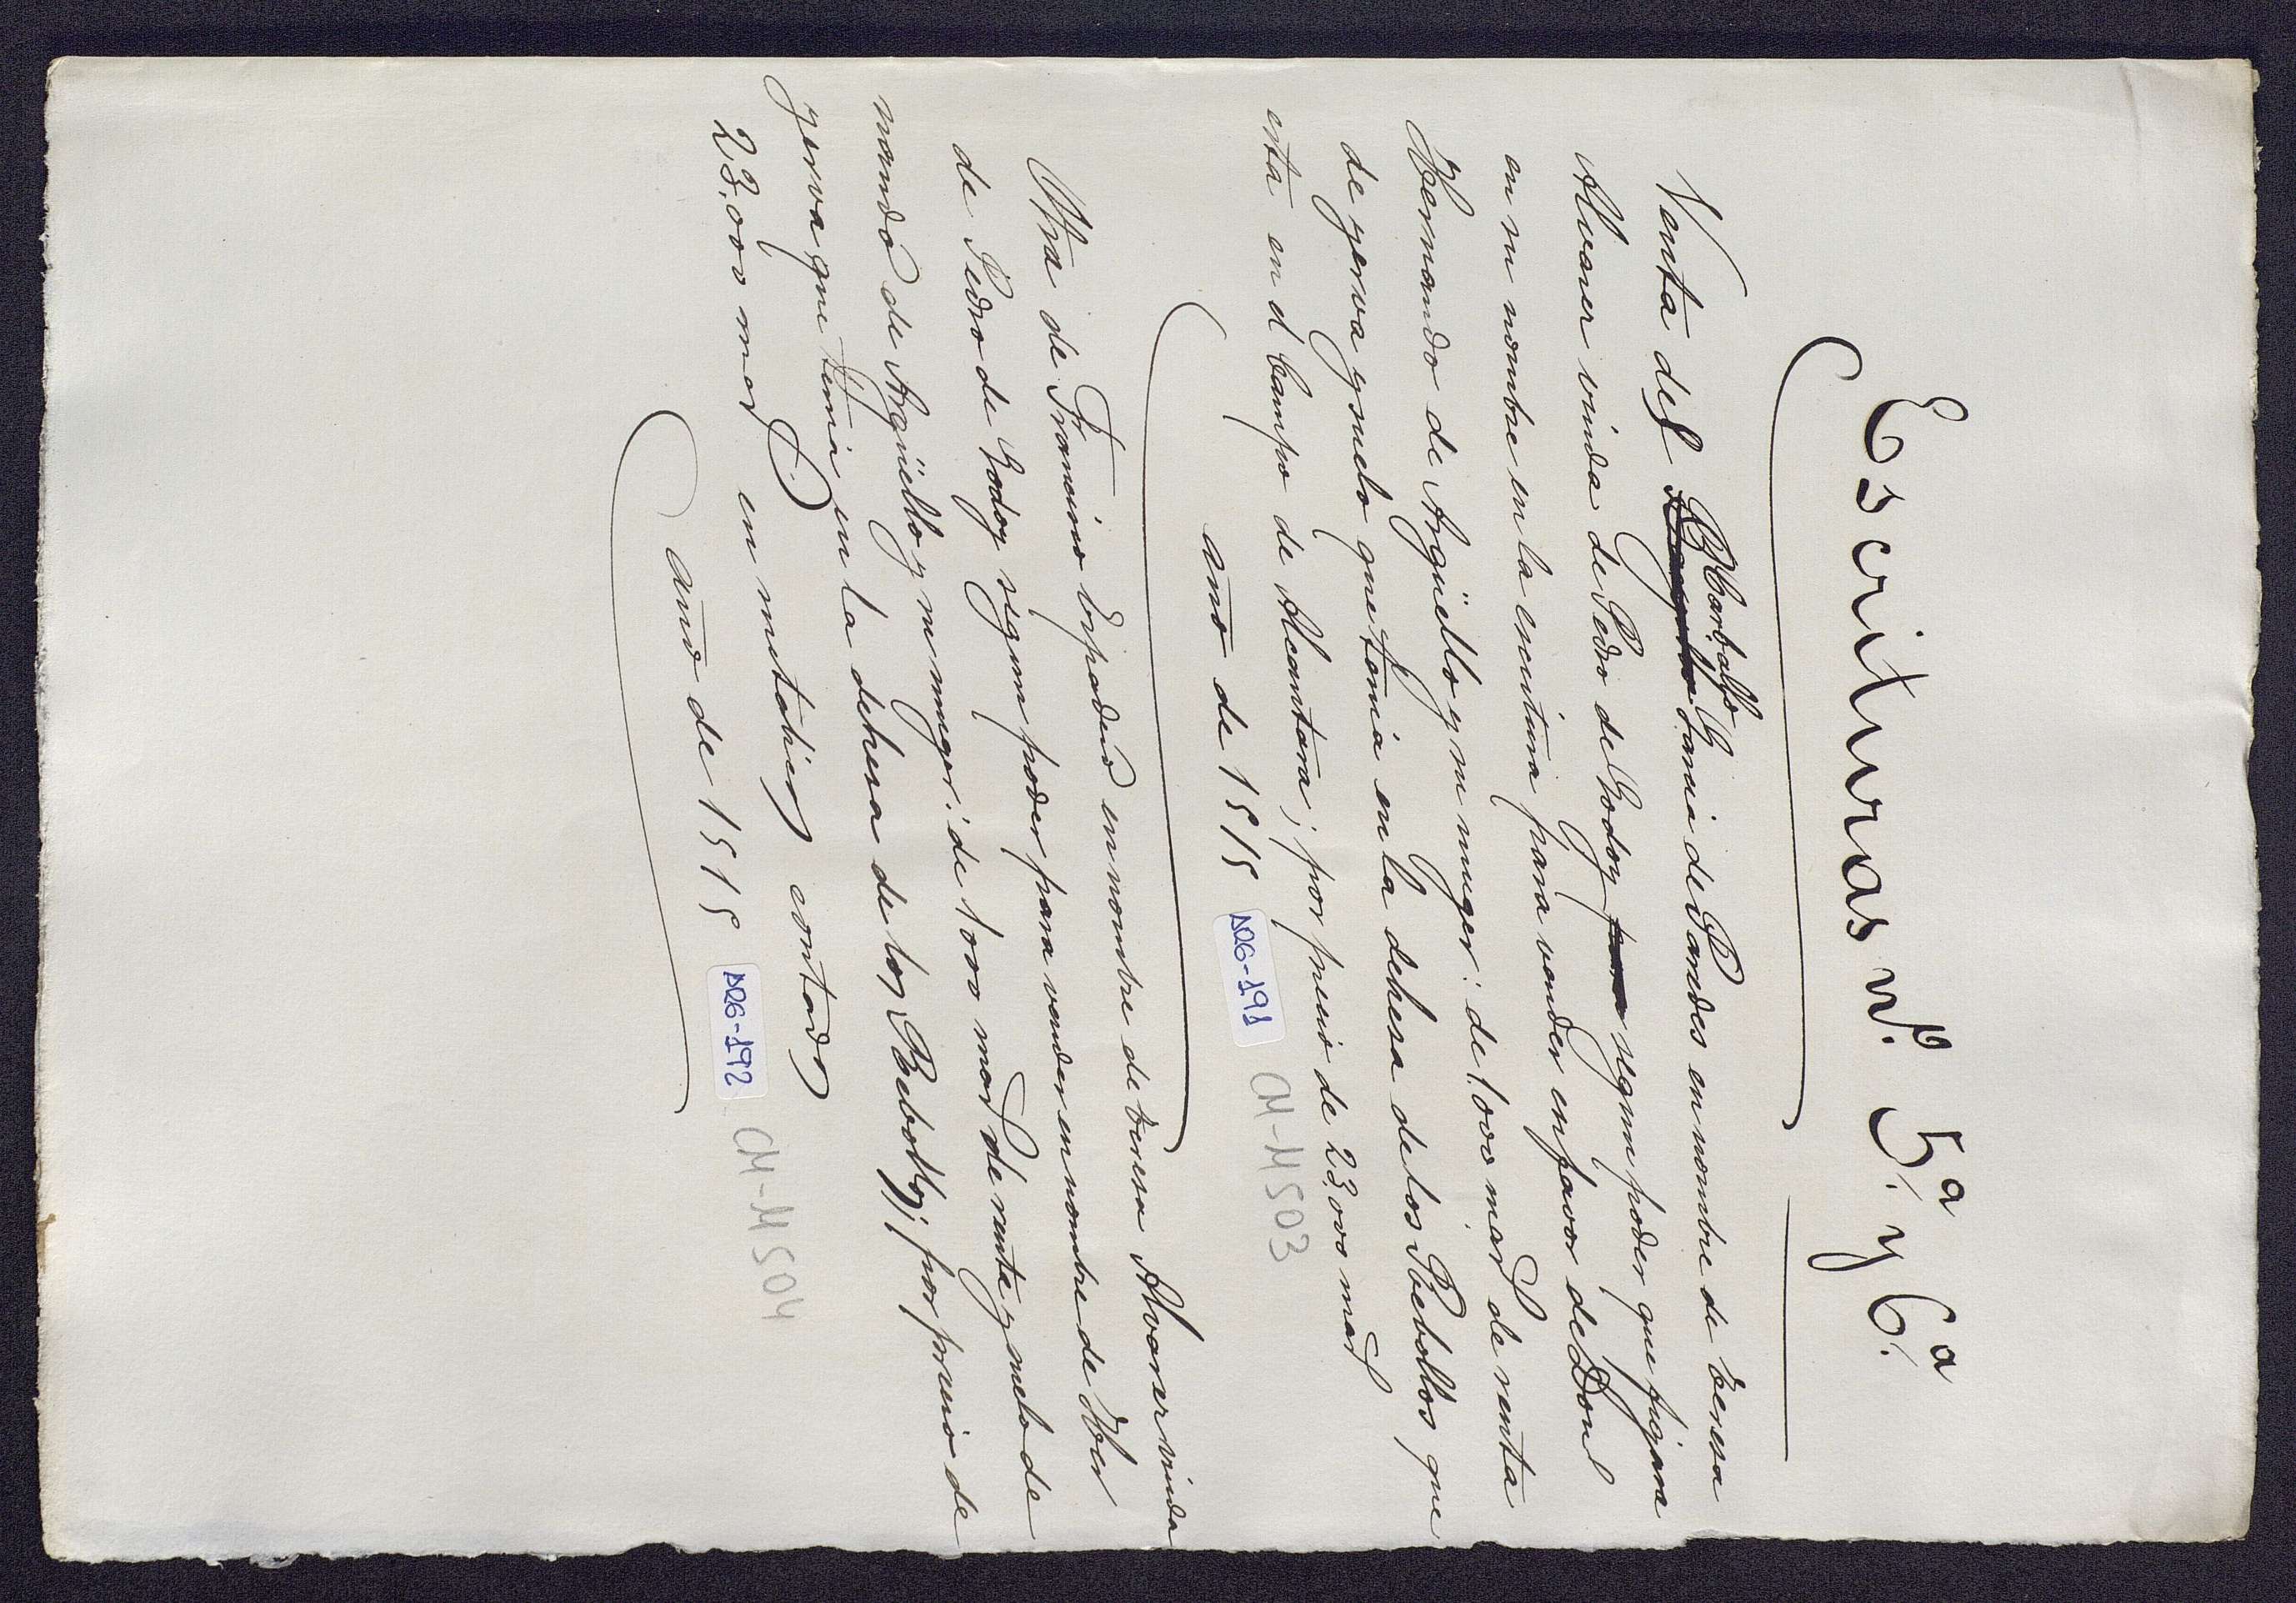 Escrituras nº. 5ª y 6ª
Venta del Garcia de Paredes en nombre de Teresa
Alvarez viuda de Pedro de Godoy para segun poder que figura
en su nombre en la escritura para vender en favor de Don
Hernando de Argüello y su muger: de 1.000 mar de renta
de yerva y suelo que tenia en la dehesa de los Rebollos que
esta en el Campo de Alcantara; por precio de 23.000 mar
año de 1515
AQG-191
CM-11503
Otra de Francisco Espadero en nombre de Teresa Alvarez viuda
de Pedro de Godoy segun poder para vender en nombre de Her
nando de Argüello y su muger: de 1000 mar de renta y suelo de
yerva que tenia en la dehesa de los Rebollos; por precio de
23.000 mar en contado
año de 1515
AQG-192
CM-11504